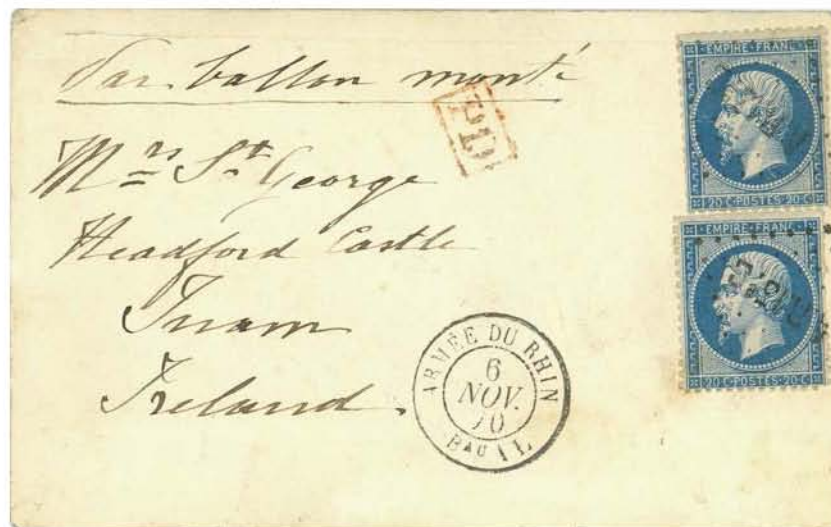 Par ballon monté
PD
Mrs St. George
Headford Castle
Tuam
Ireland.
ARMÉE DU RHIN
6
NOV.
70
BAU AL
EMPIRE FRANC
20 C · POSTES · 20 C
EMPIRE FRANC
20 C · POSTES · 20 C